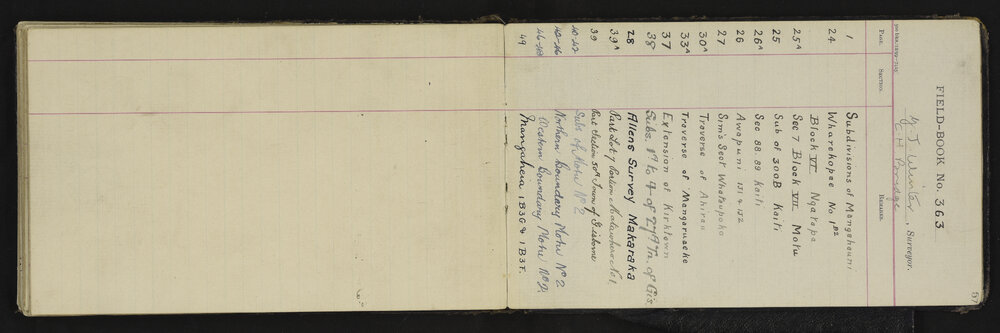 57
FIELD-BOOK No. 363
J. J. Winter, Surveyor.
C H
Page. Section. Remarks.
1 Subdivisions of Mangahauini
24 Wharekopae No. 1
Block VI Ngatapa
25A Sec 7 Block VII Motu
25 Sub of 300B Kaiti
26A Sec 88 89 Kaiti
26 Awapuni 131 & 132
27 Sim's Sect Whataupoko
30A Traverse of Ahirau
33A Traverse of Mangaruaeke
37 Extension of Kirktown
38 Subs. of Tn. of Gis.
28 Allens Survey Makaraka
39A Part Lot 7 Portion Matawhero No 1
39 Part Section 50A Town of Gisborne
40-42 Subs of Motu No 2
43-46 Northern Boundary Motu No 2
46-48 Western Boundary Motu No 2.
49 Mangaheia 1B3G & 1B3F.